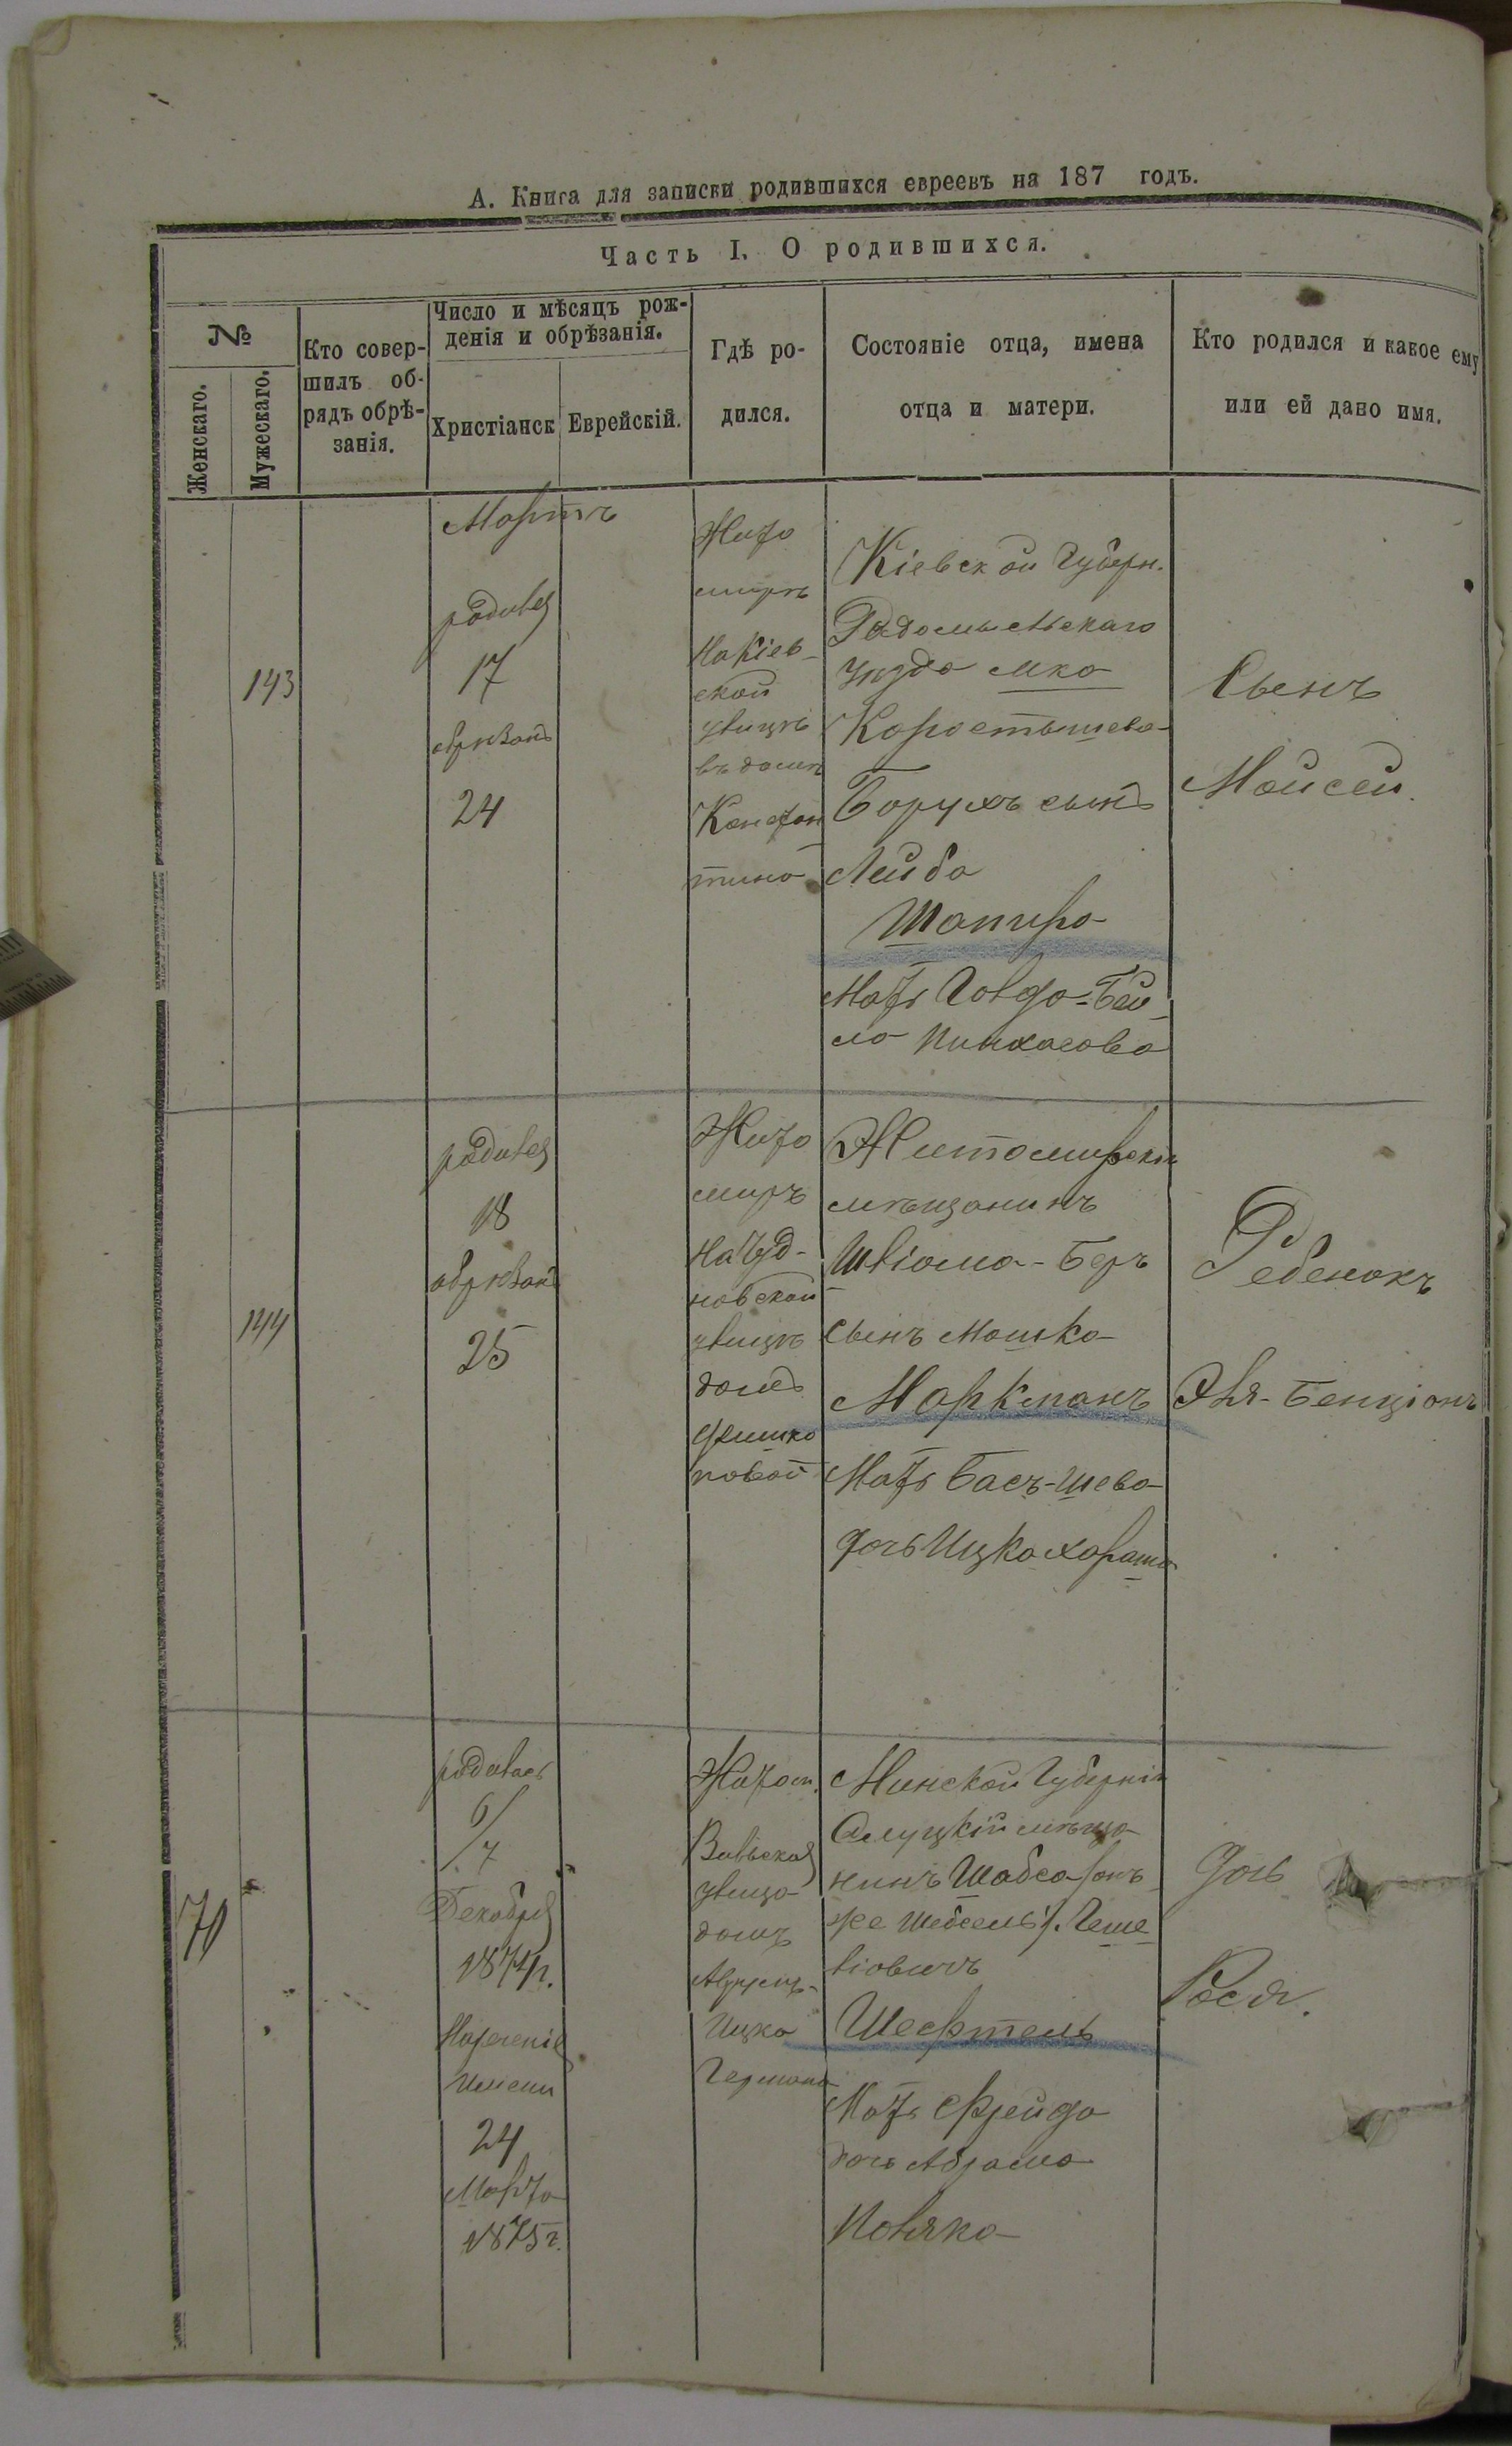 А. Книга для записки родившихся евреевъ на 187 годъ.
Часть I. О родившихся.
№
Женскаго.
Мужескаго.
Кто совер-
шилъ об-
рядъ обрѣ-
занія.
Число и мѣсяцъ рож-
денія и обрѣзанія.
Христіанск
Еврейскій.
Гдѣ ро-
дился.
Состояніе отца, имена
отца и матери.
Кто родился и какое ему
или ей дано имя.
Мартъ
143
родился
17
обрѣзанъ
24
Жито
миръ
На Кіев-
ской
улицѣ
въ домѣ
Констан
тина
Кіевской Губерн.
Радомысльскаго
уѣзда мка
Коростышева
Борухъ сынъ
Лейба
Шапиро
Мать Голда-Бей-
ла Пинхасова
Сынъ
Мойсей
144
родился
18
обрѣзанъ
25
Жито
миръ
На Чуд-
новской
улицѣ
домъ
Фишма
новой
Житомирскій
мѣщанинъ
Шліома-Беръ
сынъ Мошка
Маркманъ
Мать Бася-Шева
дочь Ицка
Ребенокъ
Эля-Бенціонъ
70
родилась
6/
/7
Декабря
1874г.
Нареченіе
Имени
24
Марта
1875г.
Житом.
Вильская
улица
домъ
Ицка
Германа
Минской Губерніи
Слуцкій мѣща
нинъ Шабса /онъ
же Шебсель/. Геше
ліовичъ
Шефтель
Мать Фрейда
дочь Абрама
Поляка
Дочь
Рося.